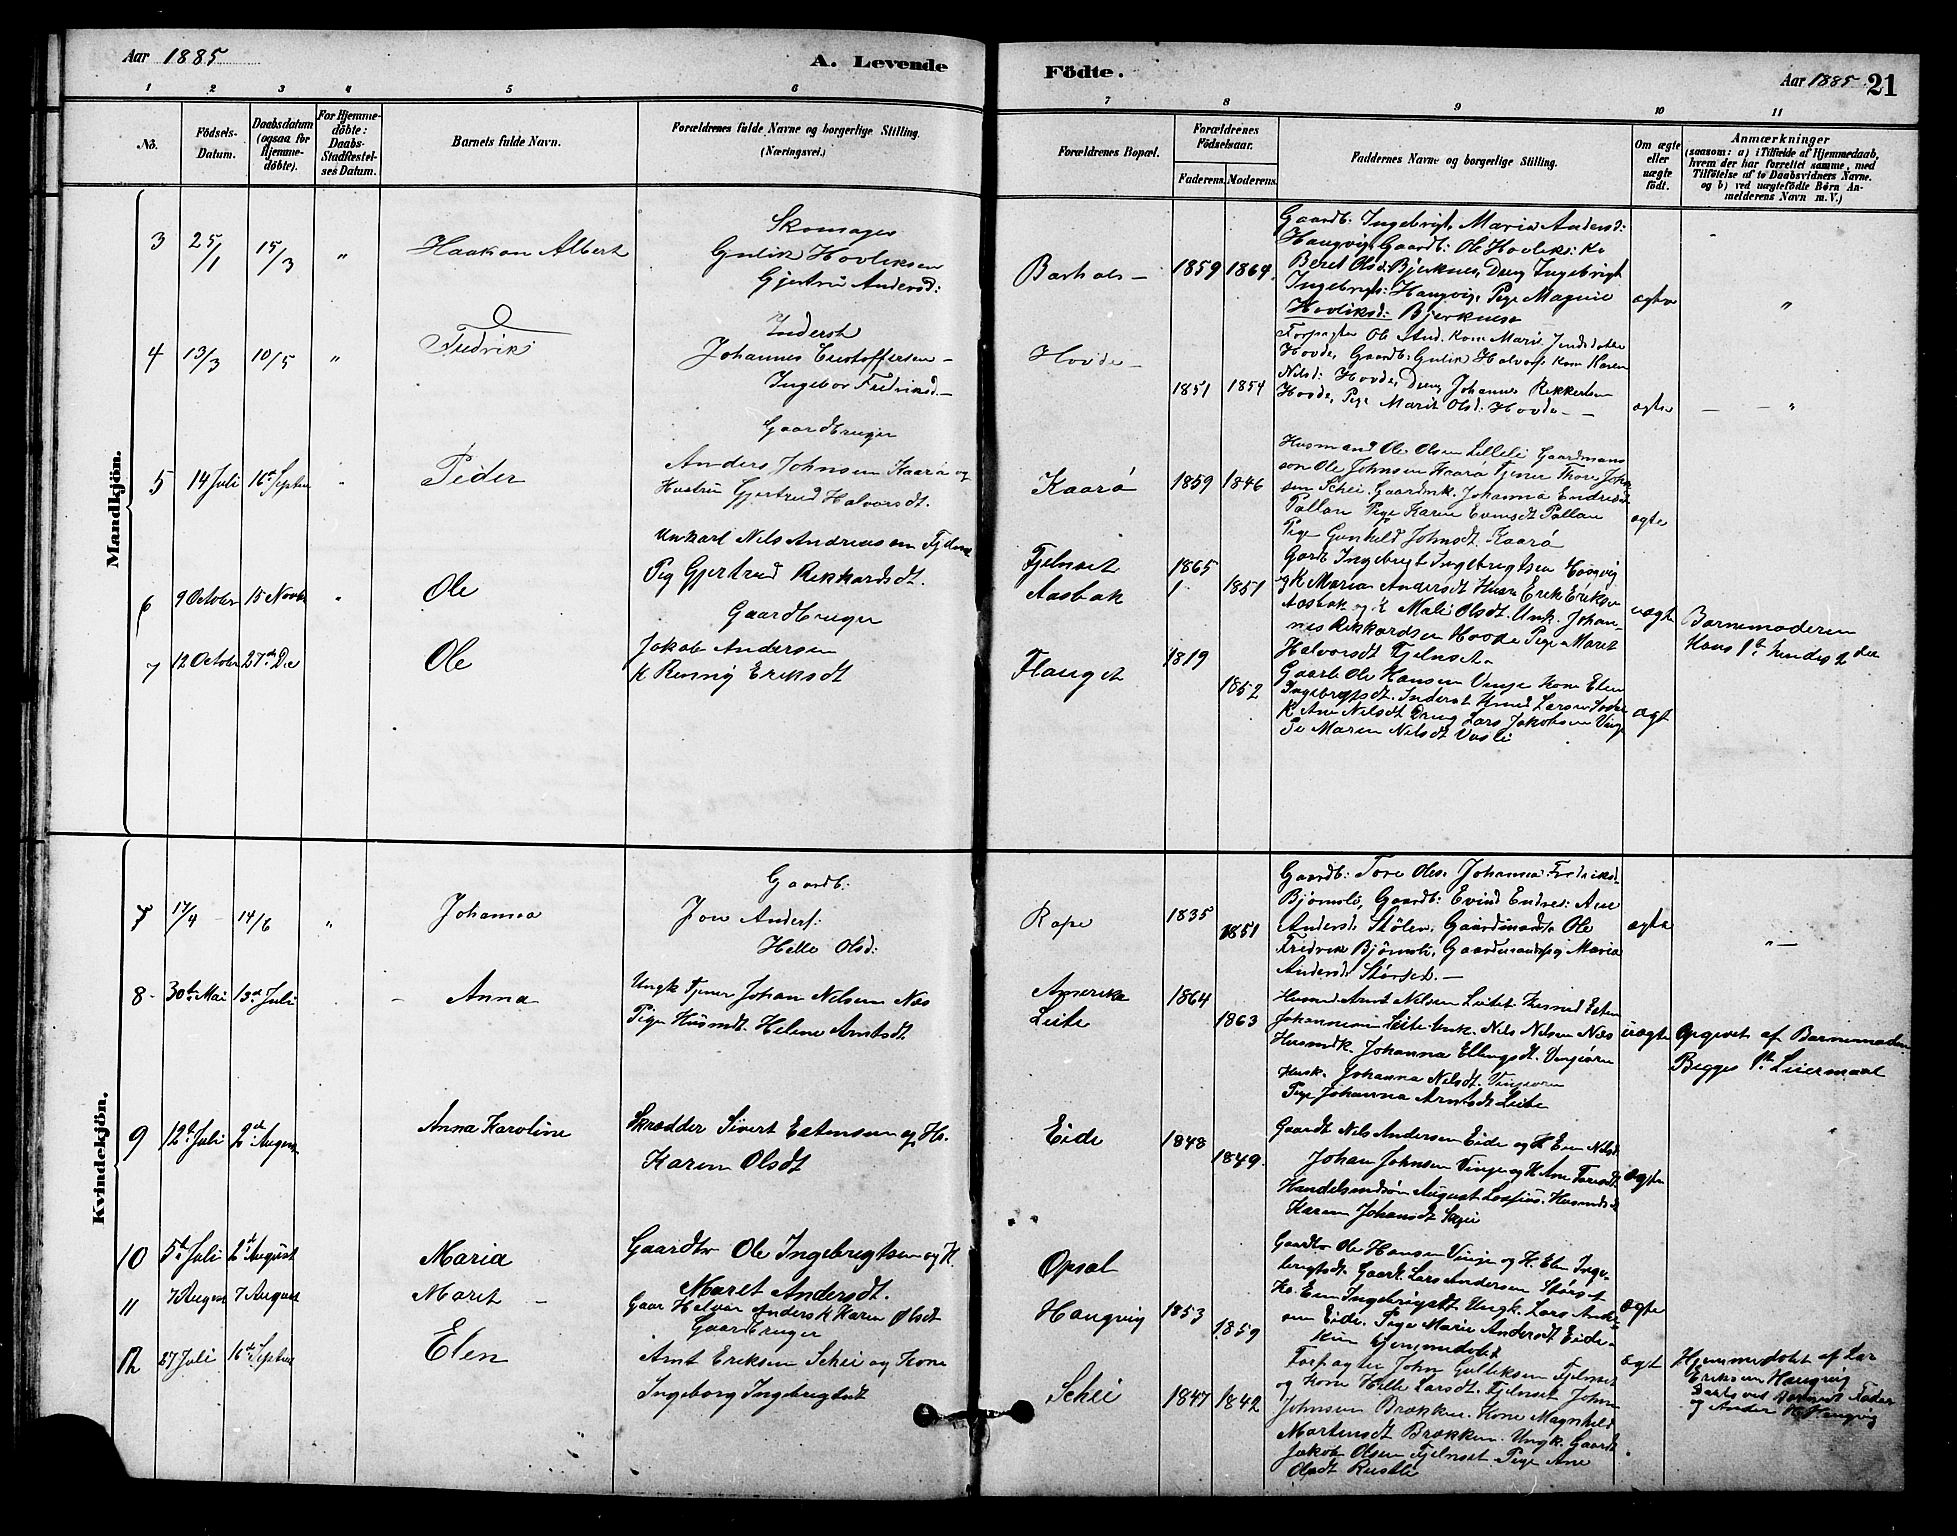 Aar 1885
A. Levende
Födte.
Aar 1885
21
1 2 3 4 5 6 7 8 9 10 11
No.
Födsels-Datum.
Daabsdatum (ogsaa for Hjemme-döbte).
For Hjemme-döbte: Daabs-Stadfæstel-ses Datum.
Barnets fulde Navn.
Forældrenes fulde Navne og borgerlige Stilling.
(Næringsvei.)
Forældrenes Bopæl.
Forældrenes Födselsaar.
Faderens. Moderens.
Faddernes Navne og borgerlige Stilling.
Om ægte eller uægte födt.
Anmærkninger
(saasom: a) i Tilfælde af Hjemmedaab,
hvem der har forrettet samme, med
Tilföielse af to Daabsvidners Navne.
og b) ved uægtefödte Börn An-
melderens Navn m. V.)
Mandkjön.
3 25/1 15/3 " Haakon Albert
Skomager
Gulik Hovliksen
Gjertru Andersd:
Barhals - 1859 1864
Gaardb: Ingebrigt, Maria Andersd:
Haugvig, Gaardb: Ole Hovliks: Ko
Beret Olsd: Bjerknes, Dreng Ingebrigt
Ingebrigts: Haugvig, Pige Magnie
Hovliksd: Bjerknes
ægte "
4 13/3 10/5 " Fredrik
Inderst
Johannes Cristoffersen -
Ingebor Fredriksd. -
Hovde - 1851 1854
Forpagter Ole And. Kone Marit
Hovde, Gaardb: Gulik Halvors. Kone Karen
Nilsd: Hovde, Dreng Johannes Rekkertsen
Hovde, Pige Marit Olsd. Hovde -
ægte - "
5 14 Juli 16de Septbr " Peder
Gaardbruger
Anders Johnsen Kaarö og
Hustru Gjertrud Halvorsdt.
Kaarö 1859 1846
Husmand Ole Olsen Lilleli Gaardmans
son Ole Johnsen Kaarö Tjener Thore John
sen Schei. Gaardmk. Johanna Endresdt
Pallan Pige Karen Evensdt Pallan
Pige Gunhild Johnsdt. Kaarö
ægte
6 9 October 15 Novbr " Ole
Unkarl Nils Andreassen Fjelnset
Pig Gjertrud Rekkardsdt.
Fjelnset
Aasbak
1865 1851
Gardb Ingebrigt Ingebrigtsen Hougvig
og K Maria Andersdt Husm Erik Eriksen
Aasbak og K Mali Olsdt. Unk. Johan-
nes Rekkardsen Hovde Pige Maret
Halvorsdt Fjelnset.
uægte
Barnemoderen
Hans 1ste hendes 2den
7 12 October 27de De Ole
Gaardbruger
Jakob Andersen
K Renning Eriksdt
Flauget 1819 1852
Gaarb Ole Hansen Vinje Kone Elen
Ingebrigtsdt. Inderst Knud Larsen
K Ane Nilsdt Dreng Lars Jakobsen Vinje
Pi Maren Nilsdt Vasli
ægt
Kvindekjön.
7 17/4 - 14/6 " Johanna
Gaardb:
Jon Anders:
Helle Olsd:
Rope 1835 1851
Gaardb: Tore Oles. Johanna Fredriksd.
Bjørnli, Gaardb: Evind Endres: Ane
Andersd: Stølen, Gaardmands. Ole
Fredriks Bjørnli, Gaardmandspig Maria
Andersd: Störset -
ægte " -
8 - 30te Mai 13de Juli - Anna
Ungk Tjener Johan Nilsen Næs
Pige Husmdt. Helene Arntsdt
Amerika
Leite
1864 1863
Husmd Arnt Nilsen Leitet Husmd Esten
Johannesen Leite Unk. Nils Nilsen Næs
Husmdk. Johanna Ellingsdt. Vinjeören
Husk. Johanna Nilsdt. Vinjeören
Pige Johanna Arntsdt Leite
uægte
Opgivet af Barnemoderen
Begges 1ste Leiermaal
9 12te Juli 2det August Anna Karoline
Skrædder Sivert Estensen og H.
Karen Olsdt
Eide 1848 1849.
Gaardb Nils Andersen Eide og K Elen Nilsd.
Johan Johnsen Vinje og K Ane Toresdt.
Handelsmdsön August Lossius. Husmdsd
Karen Johansdt
ægte
10 5te Juli 2det August Maria
Gaardbr Ole Ingebrigtsen og K.
Maret Andersdt.
Opsal
Gaardbr Ole Hansen Vinje og K. Elen Inge-
brigtsdt. Gaark. Lars Andersen Störset
Ko. Elen Ingebrigtsdt. Ungk. Lars Ander-
sen Eide. Pige Marie Andersdt Eide.
ægte
11 7 August 7 August Maret -
Gaar Halvor Anders K Karen Olsdt
Haugvig 1853 1859
Kun hjemmedøbt
ægt
Hjemmedøbt af Lars
Eriksen Haugvig
12 27 Juli 16de Septbr Elen
Gaarbruger
Arnt Eriksen Schei og Kone
Ingeborg Ingebrigtsdt
Schei 1847 1842
Forpagter John Gulliksen Fjelnset
og Kone Helle Larsdt. Fjelnset John
Johnsen Brækken. Kone Magnhild
Mortensdt Brækken. Ungk. Gaardt
Jakob Olsen Fjelnset. Pige Ane
Olsdt Rustli